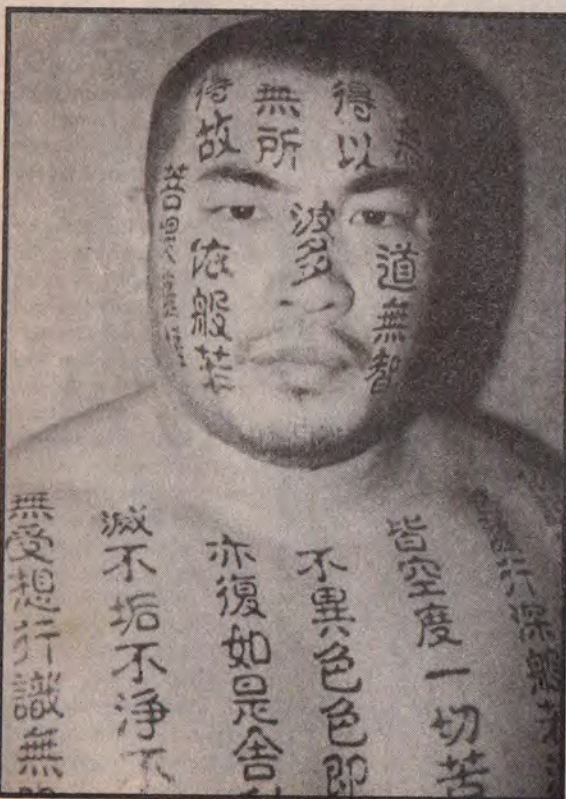 道無智
得以
無所
得故
菩
依般若
波多
行深般若
皆空度一切苦
不異色色即
亦復如是舍
滅不垢不淨不
無受想行識無